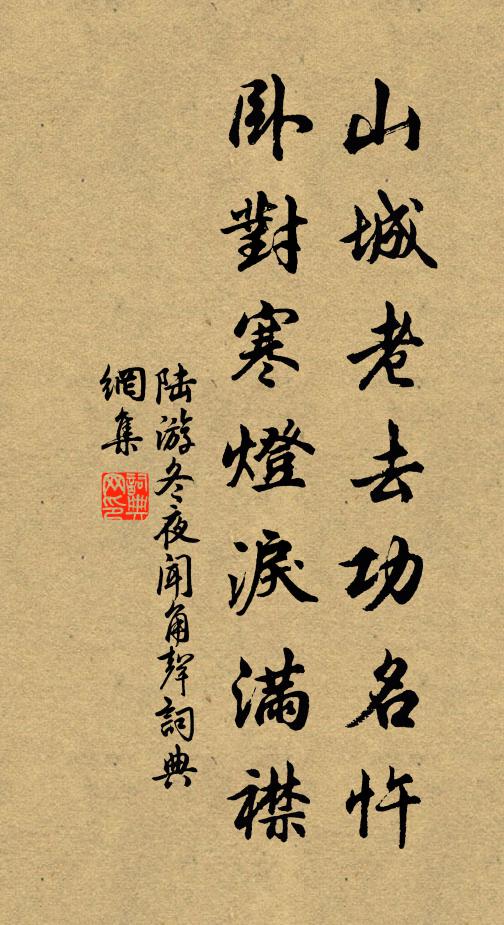 山城老去功名忤
卧對寒燈淚滿襟
陸游冬夜聞角聲詞典
網集
詞典網印